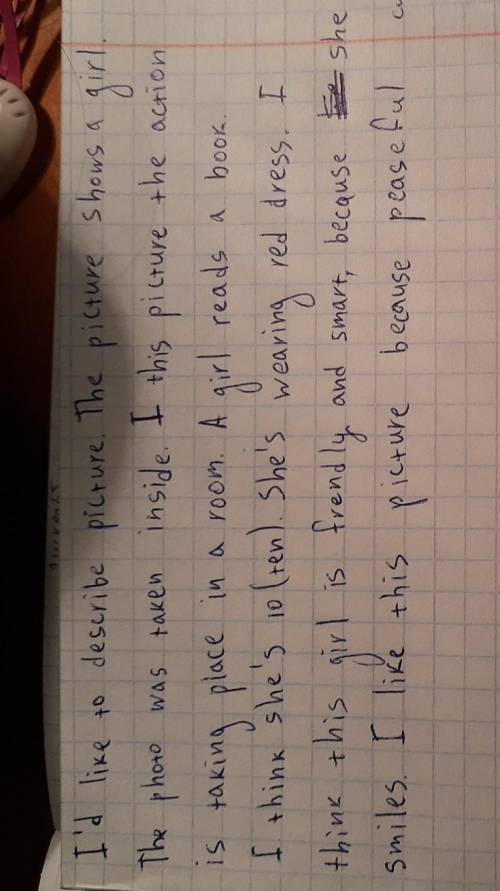 I'd like to describe picture. The picture shows a girl.
The photo was taken inside. I this picture the action
is taking place in a room. A girl reads a book.
I think she's 10 (ten). She's wearing red dress. I
think this girl is frendly and smart, because she
smiles. I like this picture because peaseful